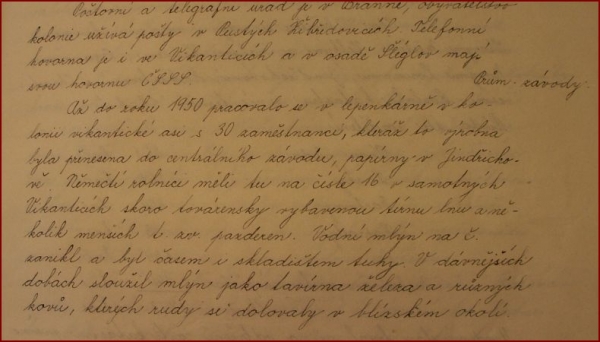 Poštovní a telegrafní úřad je v Branné, obyvatelstvo
kolonie užívá pošty v Pustých Žibřidovicích. Telefonní
hovorna je i ve Vikanticích a v osadě Šléglov mají
svou hovornu ČSSS.
Prům. závody.
Až do roku 1950 pracovalo se v lepenkárně v ko-
lonii vikantické asi s 30 zaměstnanci, kteráž to výrobna
byla přenesena do centrálního závodu, papírny v Jindřicho-
vě. Němečtí rolníci měli tu na čísle 16 v samotných
Vikanticích skoro továrensky vybavenou tírnu lnu a ně-
kolik menších t. zv. pazderen. Vodní mlýn na č.
zanikl a byl časem i skladištěm tuhy. V dávnějších
dobách sloužil mlýn jako tavírna železa a různých
kovů, kterých rudy se dolovaly v blízském okolí.